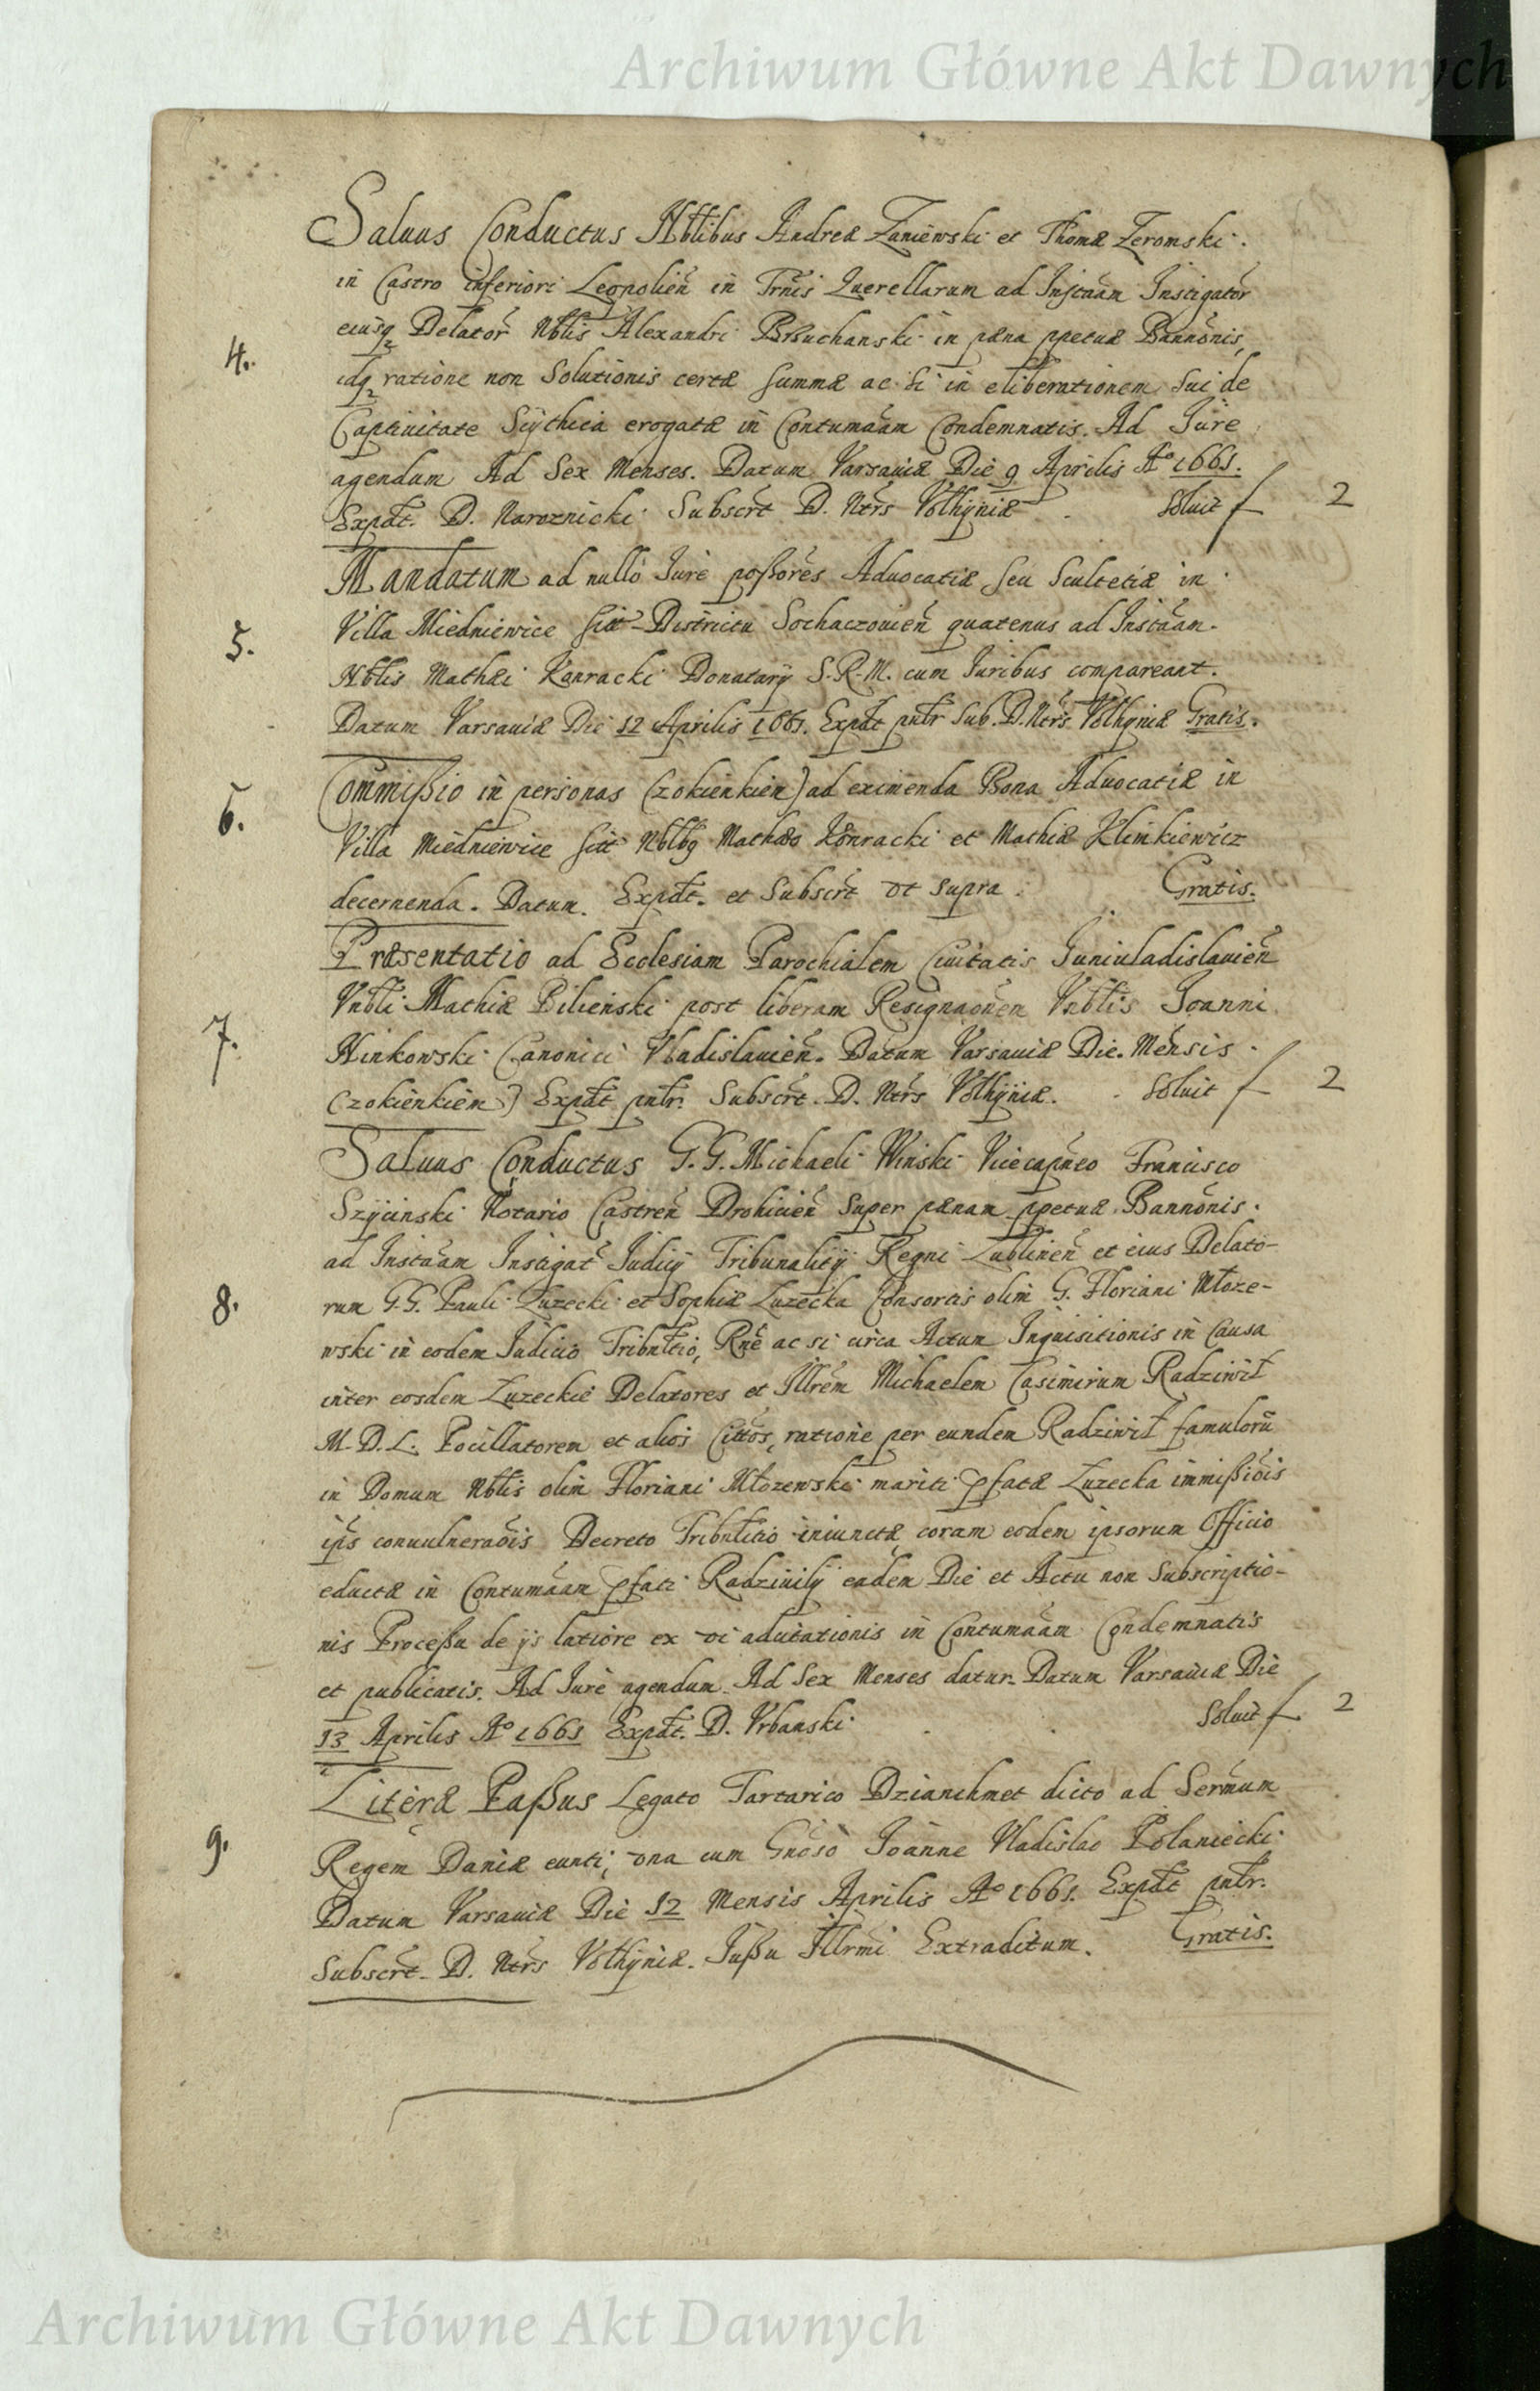 Archiwum Główne Akt Dawnych
Saluus Conductus Nbtlibus Andreæ Zaniewski et Thomæ Zeromski.
in Castro inferiori Leopolien̄ in Trn̄is Querellarum ad Instāam Instigator̄
eiusq₃ Delator̄ Nbtlis Alexandri Bruchanski in pæna ppetuæ Bannōnis,
idq₃ ratione non Solutionis certæ summæ ac si in eliberationem sui de
Captiuitate Scythica erogatæ in Contumāam Condemnatis. Ad Jure
4.
agendum Ad Sex Menses. Datum Varsauiæ Die 9 Aprilis Aº 1661.
Expdt. D. Naroznicki Subscrt̄ D. Ntrs̄ Volhyniæ. Soluit f 2
Mandatum ad nullo Jure poßores Aduocatiæ seu Scultetiæ in
5.
Villa Miedniewice sitt Districtu Sochaczouien̄ quatenus ad Instāam.
Nbtlis Mathæi Konracki Donatarÿ S. R. M. cum Juribus compareant.
Datum Varsauiæ Die 12 Aprilis 1661. Expdt pntr̄ Sub. D. Ntrs̄ Volhyniæ Gratis.
Commißio in personas (zokienkien) ad eximenda Bona Aduocatiæ in
6.
Villa Miedniewice sitt Nbtlbg Mathæo Konracki et Mathiæ Klimkiewicz
decernenda. Datum. Expdt. et Subscrt̄ vt supra. Gratis.
Præsentatio ad Ecclesiam Parochialem Ciuitatis Juniuladislauien̄
Vnbtli Mathiæ Bilienski post liberam Resignaōnem Vnbtlis Joanni
7.
Ninkowski Canonici Vladislauien̄. Datum Varsauiæ Die. Mensis.
(zokienkiem) Expdt pntr̄. Subscrt̄. D. Ntrs̄ Volhyniæ. Soluit f 2
Saluus Conductus G. G. Michaeli Winski Vicecapn̄eo Francisco
Szycinski Notario Castren̄ Drohicien̄ super pænam ppetuæ Bannōnis.
ad Instāam Instigat̄ Judicÿ Tribunalitÿ Regni Lublinen̄ et eius Delato-
8.
rum G. G. Pauli Luzecki et Sophiæ Luzecka Consortis olim G. Floriani Młoze-
wski in eodem Judicio Tribntlio, Rn̄e ac si circa Actum Inquisitionis in Causa
inter eosdem Luzeckie Delatores et Illrem Michaelem Casimirum Radziwił
M. D. L. Pocillatorem et alios Cittos, ratione per eundem Radziwił famulorū
in Domum Nbtlis olim Floriani Młozewski mariti pfatæ Luzecka immißiōis
ips̄ conuulneraōis Decreto Tribntlitio iniunctæ coram eodem ipsorum Officio
eductæ in Contumāam pfati Radziuilÿ eadem Die et Actu non Subscriptio-
nis Proceßu de ijs latiore ex vi aduitationis in Contumāam Condemnatis
et publicatis. Ad Jure agendum. Ad Sex Menses datur. Datum Varsauiæ Die
13 Aprilis Aº 1661 Expdt. D. Vrbanski Soluit f 2
Literæ Paßus Legato Tartarico Dzianchmet dicto ad Sermum
9.
Regem Daniæ eunti, vna cum Gnoso Joanne Vladislao Polaniecki
Datum Varsauiæ Die 12 Mensis Aprilis Aº 1661. Expdt pntr̄.
Subscrt̄. D. Ntrs̄ Volhyniæ. Jußu Illrmi Extraditum. Gratis.
Archiwum Główne Akt Dawnych